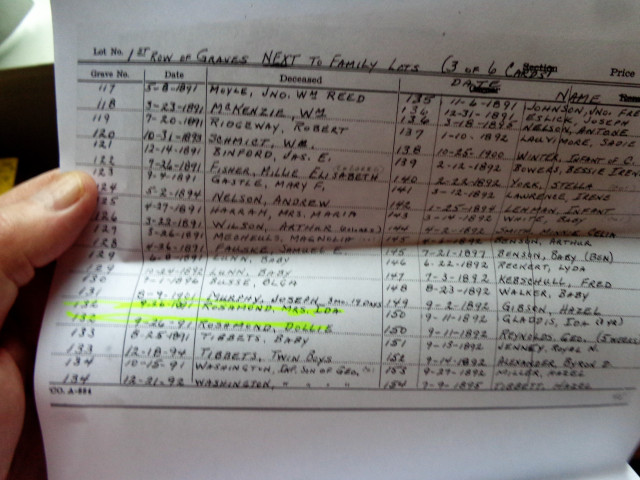 Lot No. 1ST ROW OF GRAVES NEXT TO FAMILY LOTS (3 OF 6 CARDS) Section Price
Grave No. Date Deceased DATE NAME
117 5-8-1891 MOYLE, JNO. WM REED 135 11-6-1891 JOHNSON, JNO. FRE
118 3-23-1891 MCKENZIE, WM 136 12-31-1891 ESLICK, JOSEPH
119 7-20-1891 RIDGEWAY, ROBERT 136 3-18-1895 NELSON, ANTONE
120 10-31-1893 SCHMIDT, WM. 137 1-10-1892 SADIE
121 12-14-1891 BINFORD, JAS. E. 138 10-25-1900 WINTER, INFANT OF C.
122 7-26-1891 FISHER, MILLIE ELISABETH 139 2-12-1892 BOWERS, BESSIE IRENE
123 9-4-1891 GASTLE, MARY F. 140 2-22-1892 YORK, STELLA
124 5-2-1894 NELSON, ANDREW 141 3-12-1892 LAWRENCE, IRENE
125 4-27-1891 HARRAH, MRS. MARIA 142 1-25-1894 LEHMAN, INFANT
126 3-22-1891 WILSON, ARTHUR 143 3-14-1892 WHITE, BABY
127 3-26-1891 MAGNOLIA 144 4-2-1892 SMITH, MINNIE CELIA
128 4-26-1891 SAMUEL E. 145 BENSON, ARTHUR
129 LUNN, BABY 145 7-21-1897 BENSON, BABY (BEN)
129 10-24-1892 LUNN, BABY 146 6-22-1892 RECKERT, LYDA
130 BUSSE, OLGA 147 7-3-1892 KEBSCHULL, FRED
131 8-9-1891 MURPHY, JOSEPH 3 MO. 19 DAYS 148 8-23-1892 WALKER, BABY
132 ROSAMOND, MRS. IDA 149 9-2-1892 GIBSON, HAZEL
132 9-26-91 ROSAMOND, DOLLIE 150 9-11-1892 GLADDIS, IDA
133 8-25-1891 TIBBETS, BABY 150 9-11-1892 REYNOLDS, GEO.
133 12-18-94 TIBBETS, TWIN BOYS 151 9-13-1892 JENNEY, ROYAL N.
134 10-15-91 WASHINGTON, INF. SON OF GEO. 152 9-14-1892 ALEXANDER, BYRON D.
134 12-21-92 WASHINGTON, " " " 153 9-27-1892 MILLER, HAZEL
154 9-9-1895 TIBBETT, HAZEL
CO. A-884